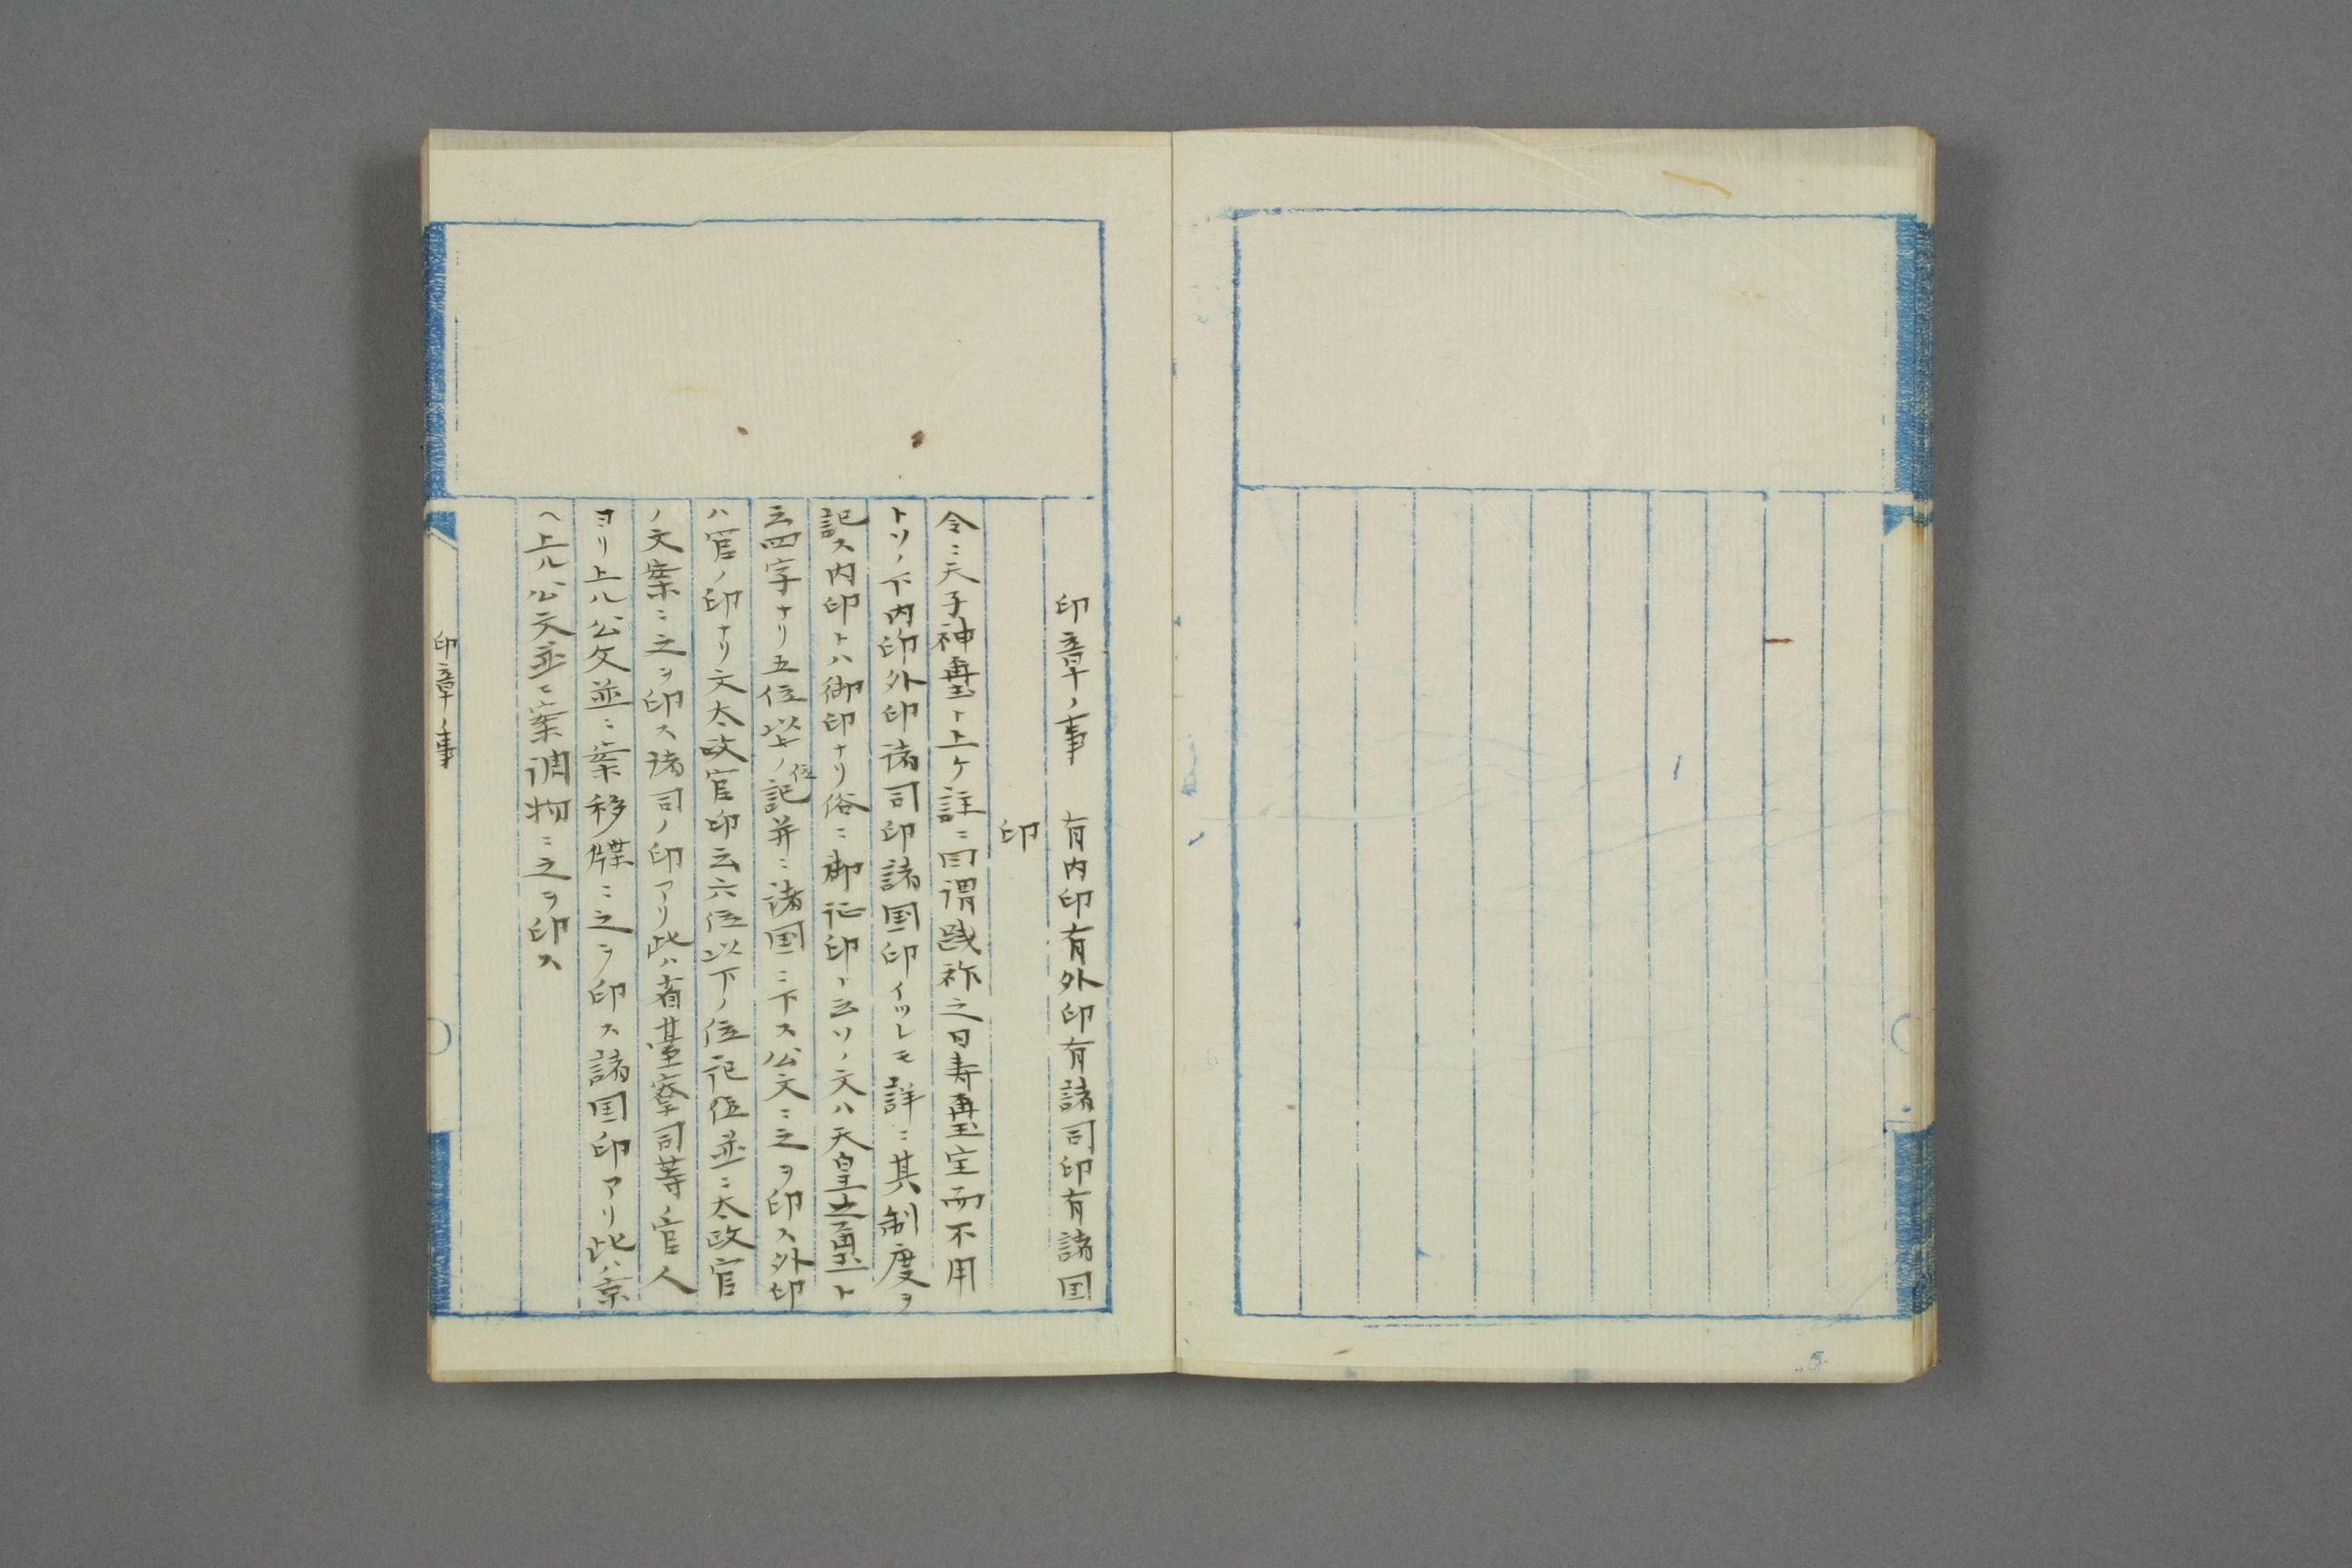 印章ノ事　有内印有外印有諸司印有諸国
印
令ニ天子神璽ト上ケ註ニ曰謂践祚之日寿璽宝而不用
トソノ下内印外印諸司印諸国印イツレモ詳ニ其制度ヲ
記ス内印トハ御印ナリ俗ニ御祉印ト云ソノ文ハ天皇之璽ト
云四字ナリ五位以上ノ位記并ニ諸国ニ下ス公文ニ之ヲ印ス外印
ハ官ノ印ナリ文太政官印云六位以下ノ位記位並ニ太政官
ノ文案ニ之ヲ印ス諸司ノ印アリ此ハ省臺寮司等ノ官人
ヨリ上ル公文並ニ案移牒ニ之ヲ印ス諸国印アリ此ハ京
ヘ上ル公文並ニ案調物ニ之ヲ印ス
印章ノ事